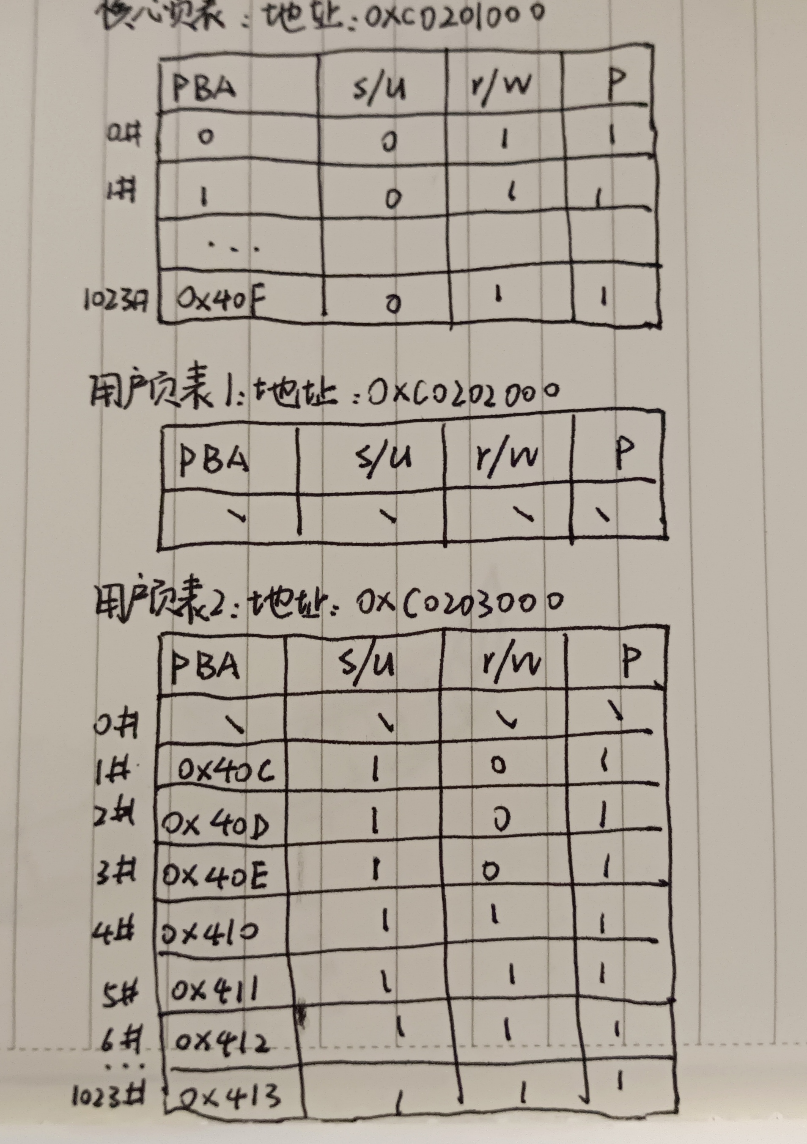 核心页表：地址：0XC0201000
PBA s/u r/w P
0# 0 0 1 1
1# 1 0 1 1
...
1023# 0X40F 0 1 1
用户页表1：地址：0XC0202000
PBA s/u r/w P
用户页表2：地址：0XC0203000
PBA s/u r/w P
0#
1# 0X40C 1 0 1
2# 0X40D 1 0 1
3# 0X40E 1 0 1
4# 0X410 1 1 1
5# 0X411 1 1 1
6# 0X412 1 1 1
...
1023# 0X413 1 1 1